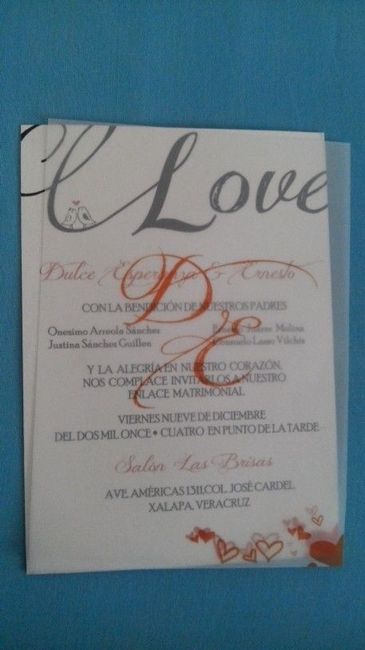 Love
Dulce Esperanza & Ernesto
D & E
CON LA BENDICIÓN DE NUESTROS PADRES
Onesimo Arreola Sánchez
Justina Sánchez Guillen
Juárez Molina
Lasso Vilchis
Y LA ALEGRÍA EN NUESTRO CORAZÓN,
NOS COMPLACE INVITARLOS A NUESTRO
ENLACE MATRIMONIAL
VIERNES NUEVE DE DICIEMBRE
DEL DOS MIL ONCE • CUATRO EN PUNTO DE LA TARDE
Salón Las Brisas
AVE. AMÉRICAS 1311.COL. JOSÉ CARDEL
XALAPA, VERACRUZ